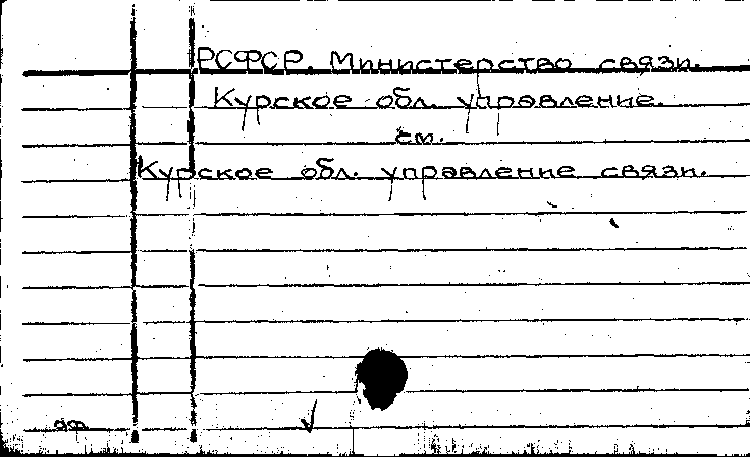 РСФСР. Министерство связи.
Курское обл. управление.
см.
Курское обл. управление связи.